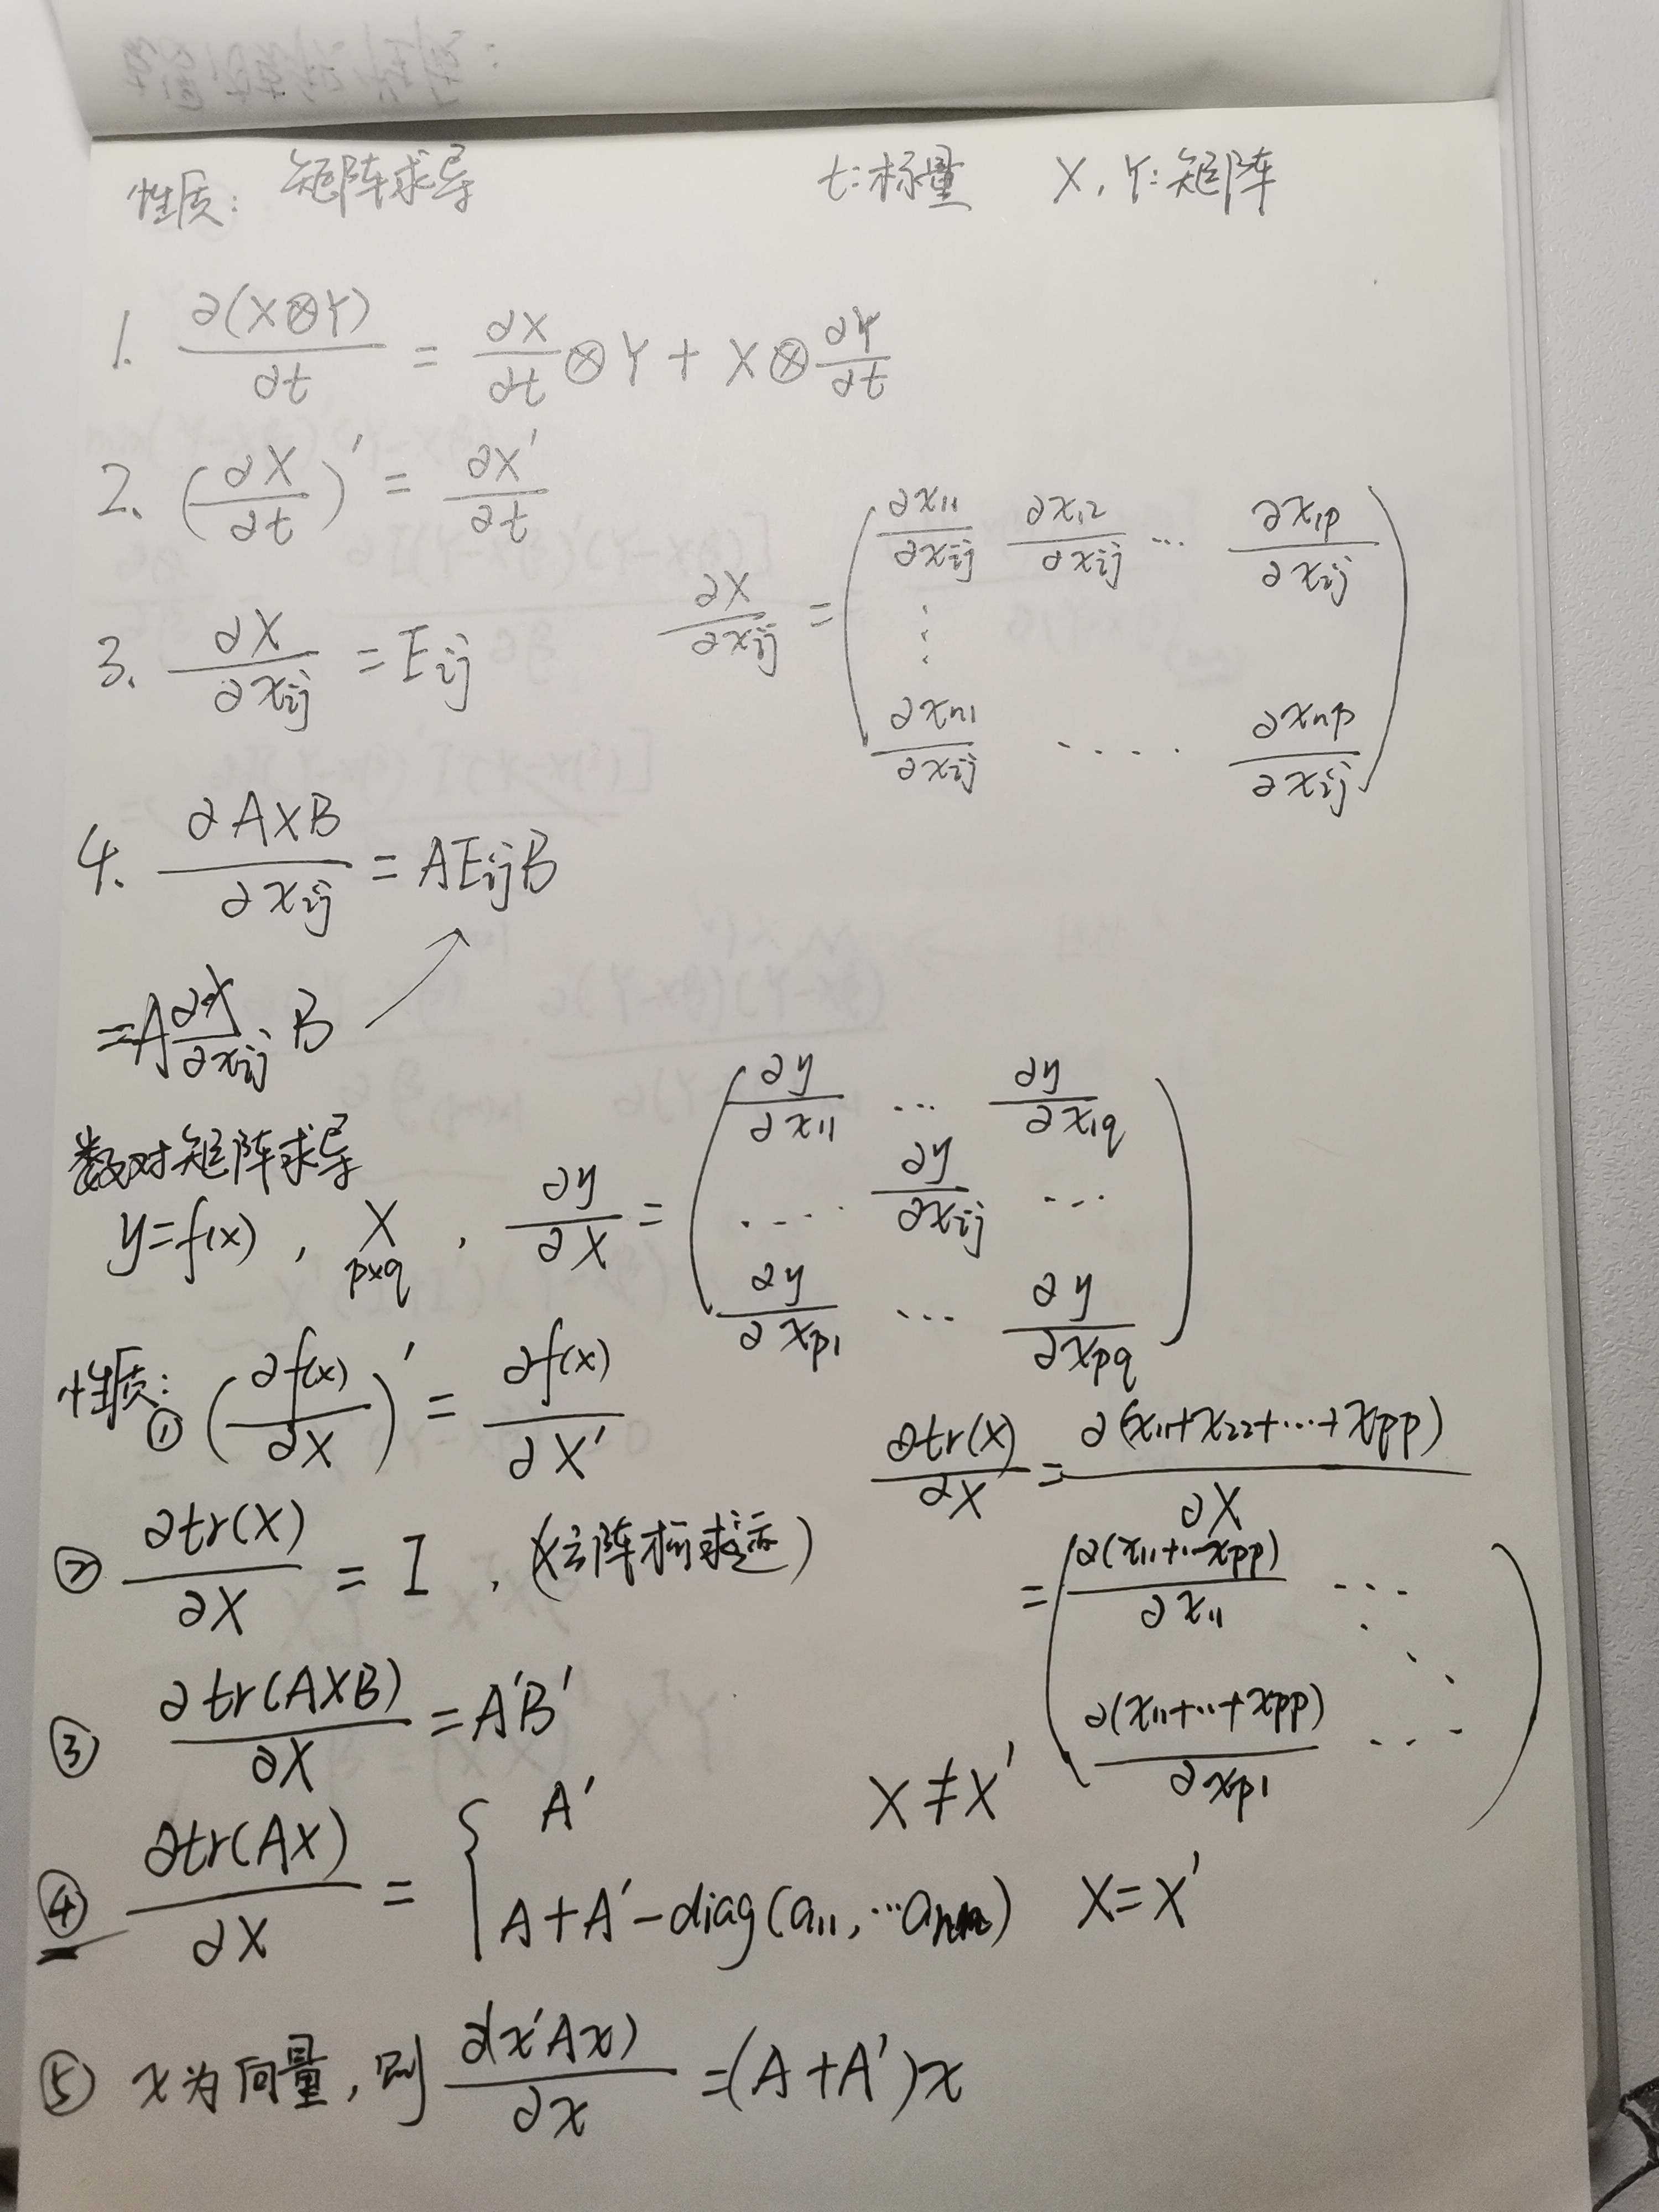 性质: 矩阵求导 t:标量 X, Y:矩阵
1. ∂(X⊗Y)/∂t = ∂X/∂t ⊗ Y + X ⊗ ∂Y/∂t
2. (∂X/∂t)' = ∂X'/∂t
3. ∂X/∂x_ij = E_ij
∂X/∂x_ij = ( ∂x_11/∂x_ij ∂x_12/∂x_ij … ∂x_1p/∂x_ij
⋮
∂x_n1/∂x_ij …. ∂x_np/∂x_ij )
4. ∂AXB/∂x_ij = AE_ijB
=A ∂X/∂x_ij B
数对矩阵求导
y=f(x), X p×q, ∂y/∂X = ( ∂y/∂x_11 … ∂y/∂x_1q
…. ∂y/∂x_ij …
∂y/∂x_p1 … ∂y/∂x_pq )
性质: ① (∂f(x)/∂X)' = ∂f(x)/∂X'
② ∂tr(X)/∂X = I, (
∂tr(X)/∂X = ∂(x_11+x_22+…+x_pp)/∂X
= ( ∂(x_11+…x_pp)/∂x_11 …
⋱
∂(x_11+..+x_pp)/∂x_p1 … )
③ ∂tr(AXB)/∂X = A'B'
④ ∂tr(AX)/∂X = { A' X≠X'
A+A'-diag(a_11,…a_nn) X=X'
⑤ x为向量, 则 ∂(x'Ax)/∂x =(A+A')x